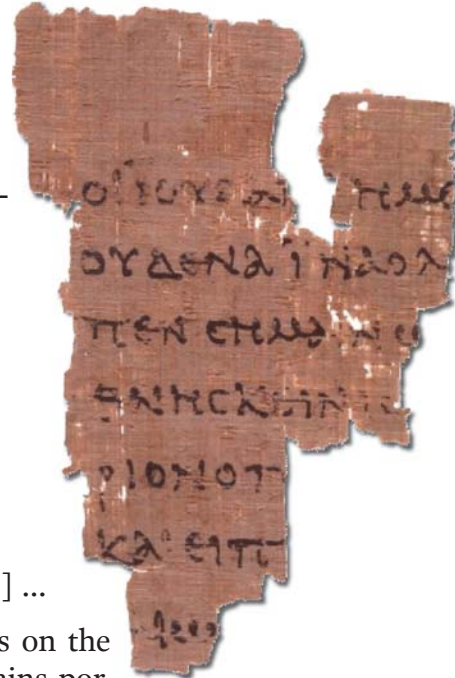 ΟΙΪΟΥΔΑΙ ΗΜΕ
ΟΥΔΕΝΑΪΝΑΟΛ
ΠΕΝCΗΜΑΙΝΩ
ΘΝΗCΚΕΙΝΙC
ΡΙΟΝΟΠ
ΚΑΙΕΙΠ
] ...
s on the